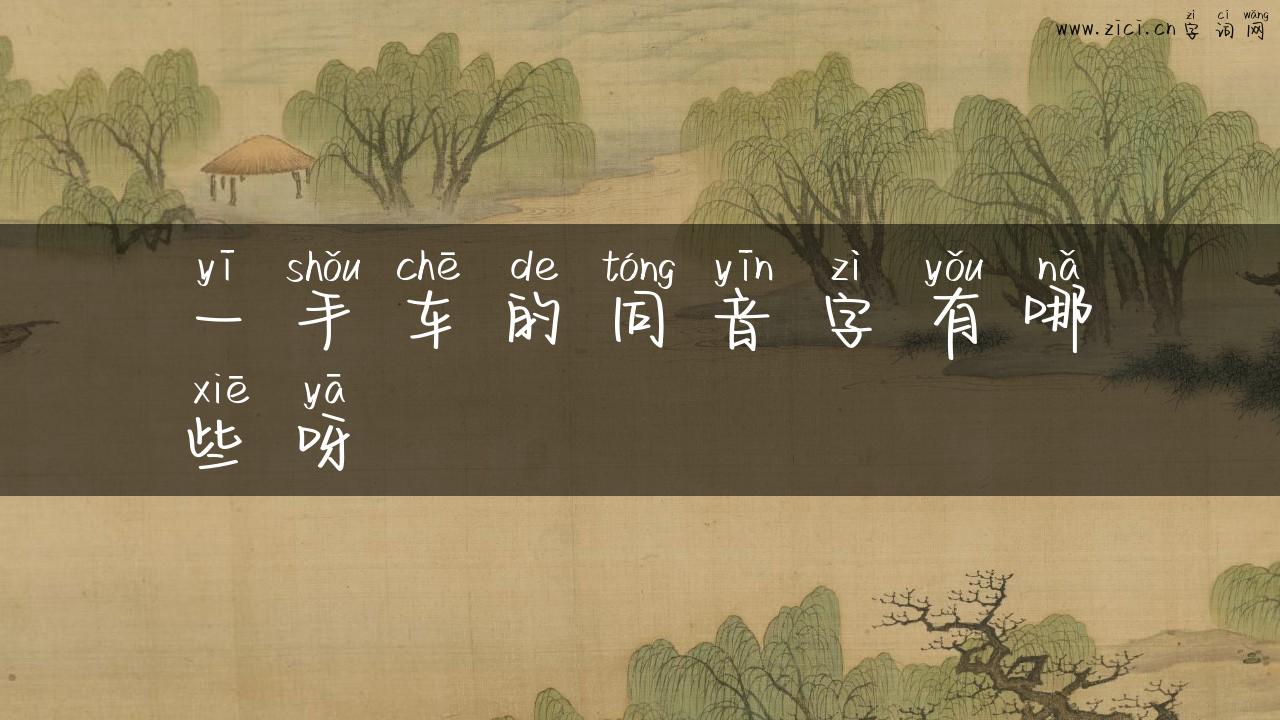 zì cí wǎng
www.zici.cn 字词网
yī shǒu chē de tóng yīn zì yǒu nǎ
一手车的同音字有哪
xiē yā
些呀